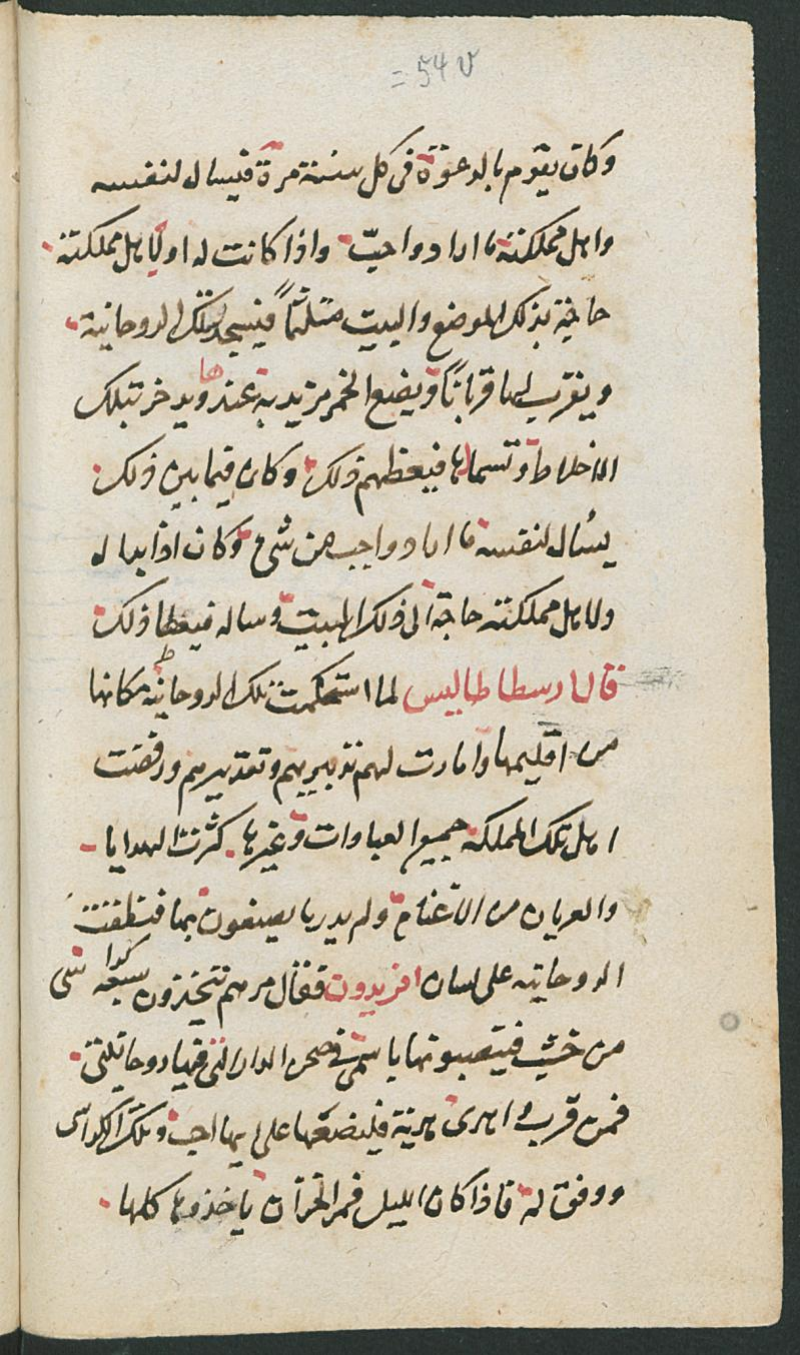 = 54 v
وكان يقوم بالدعوة فى كل سنة مرة فيسال لنفسه
واهل مملكته ما ارادوا حبّ واذا كانت له او لاهل مملكته
حاجة بذلك الموضع والبيت متلثماً فيسجد لتلك الروحانية
ويقرب لها قرباناً ويضع الخمر مزيد به عندها ويدخر بتلك
الاخلاط وتسمالها فيعظهم ذلك وكان فيما بين ذلك
يسُال لنفسه ما اراد واحب من شئ وكان اذا بدا له
ولاهل مملكته حاجة الى ذلك البيت وساله فيعطا ذلك
قال ارسطاطاليس لما استحكمت تلك الروحانية مكانها
من اقليمها وامارت لهم تدبيرهم وتقديرهم ورفضت
اهل تلك المملكة جميع العبادات وغيرها كثرت الهدايا
والعريان من الاغنام ولم يدر ما يصنعون بها فنطقت
الروحانيه على لسان افريدون فقال مرهم يتخذون سبعة كراسى
من خشب فينصبونها باسمى فى صحن الدار التى فيها روحانيتى
فمن قرب او اهدى هدية فليضعها على ايها احب وتلك الكراسى
ووفق له فاذا كان الليل فمر الخزان ياخذوها كلها